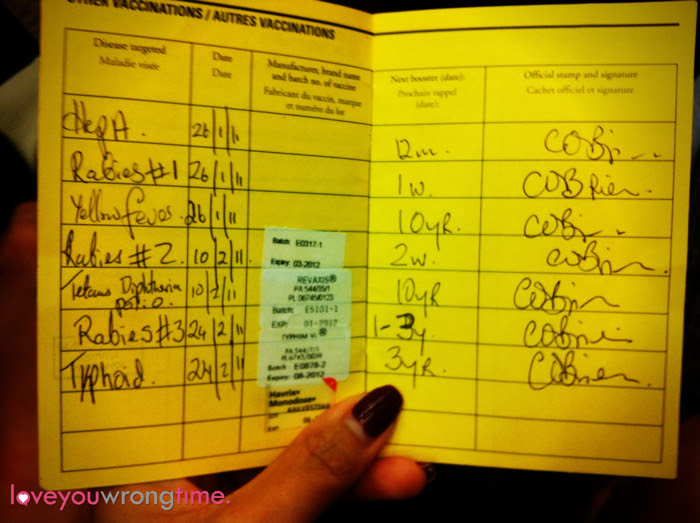 OTHER VACCINATIONS / AUTRES VACCINATIONS
Disease targeted
Maladie visée
Date
Date
Manufacturer, brand name
and batch no. of vaccine
Fabricant du vaccin, marque
et numéro du lot
Next booster (date):
Prochain rappel
(date):
Official stamp and signature
Cachet officiel et signature
Hep A. 26/1/11 12m.
Rabies #1 26/1/11 1w. COBrien.
Yellow fever. 26/1/11 10yR.
Rabies #2. 10/2/11 2w.
Tetanus Diphtheria
polio. 10/2/11 10yR
Rabies #3 24/2/11 1-3y
Typhoid. 24/2/11 3yR. COBrien.
Batch: E0317-1
Expiry: 03-2012
REVAXIS®
PA 544/35/1
PL 06745/0123
Batch: E5101-1
EXP: 01-2012
TYPHIM Vi ®
PA 544/7/1
PL 6745/0039
Batch: E0878-2
Expiry: 08-2012
Havrix
Monodose
loveyouwrongtime.